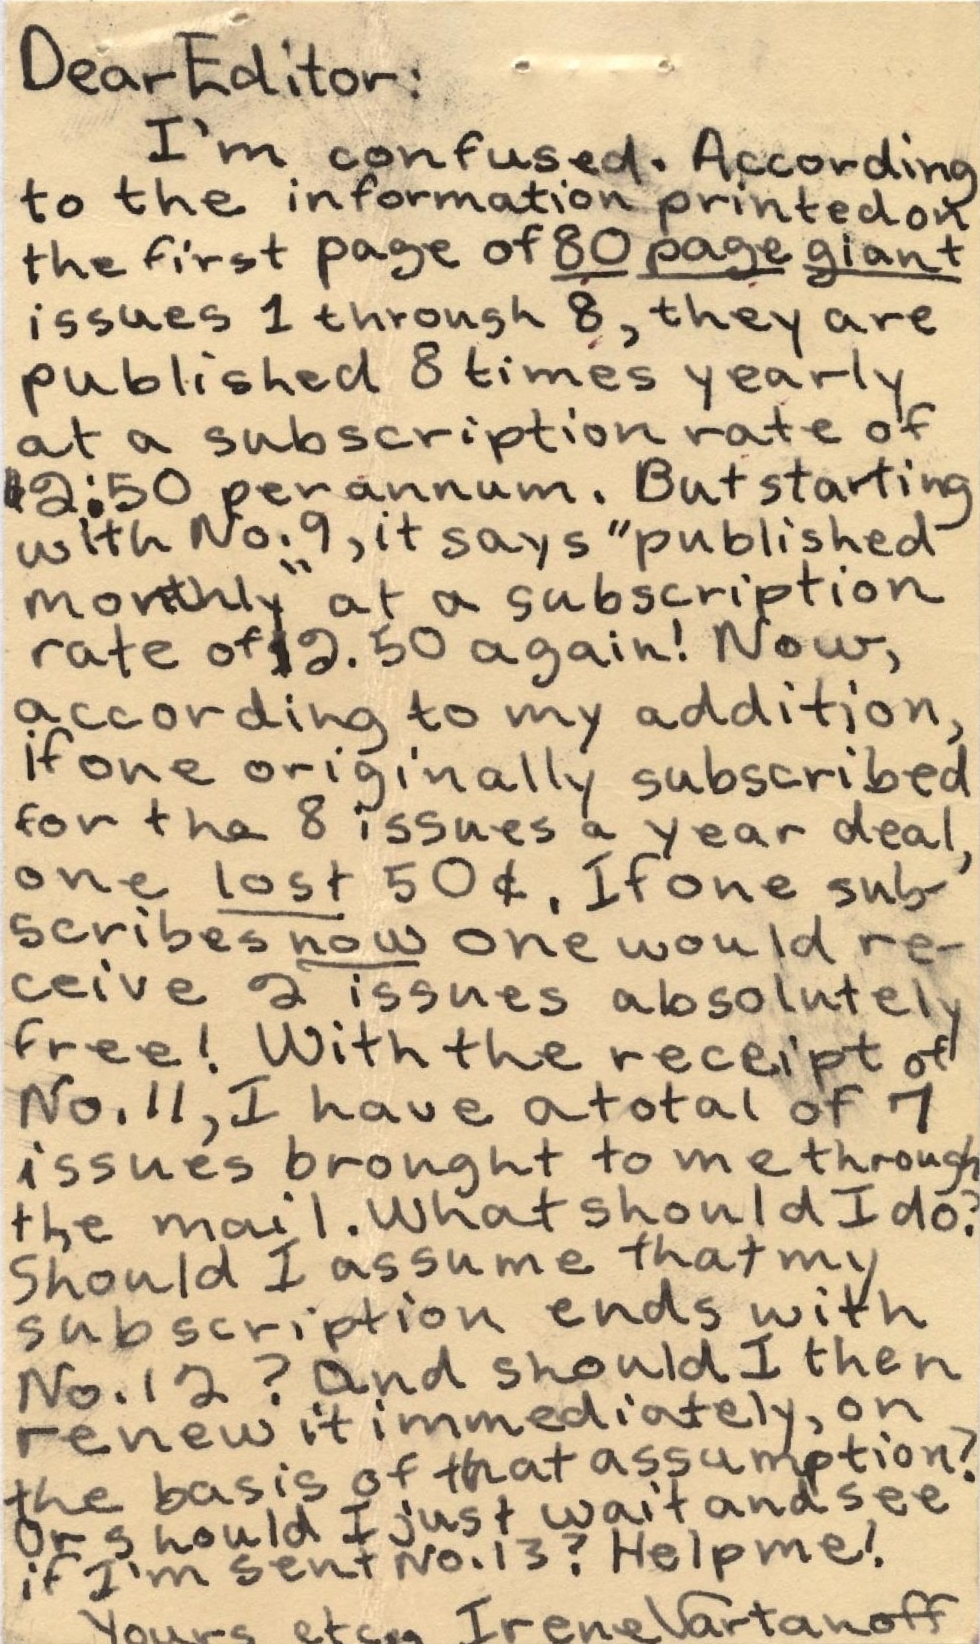 Dear Editor:
I'm confused. According
to the information printed on
the first page of 80 page giant
issues 1 through 8, they are
published 8 times yearly
at a subscription rate of
$2.50 per annum. But starting
with No. 9, it says "published
monthly" at a subscription
rate of $2.50 again! Now,
according to my addition,
if one originally subscribed
for the 8 issues a year deal,
one lost 50¢. If one sub-
scribes now one would re-
ceive 2 issues absolutely
free! With the receipt of
No. 11, I have a total of 7
issues brought to me through
the mail. What should I do?
Should I assume that my
subscription ends with
No. 12? And should I then
renew it immediately, on
the basis of that assumption?
Or should I just wait and see
if I'm sent No. 13? Help me!
Yours, etc., Irene Vartanoff